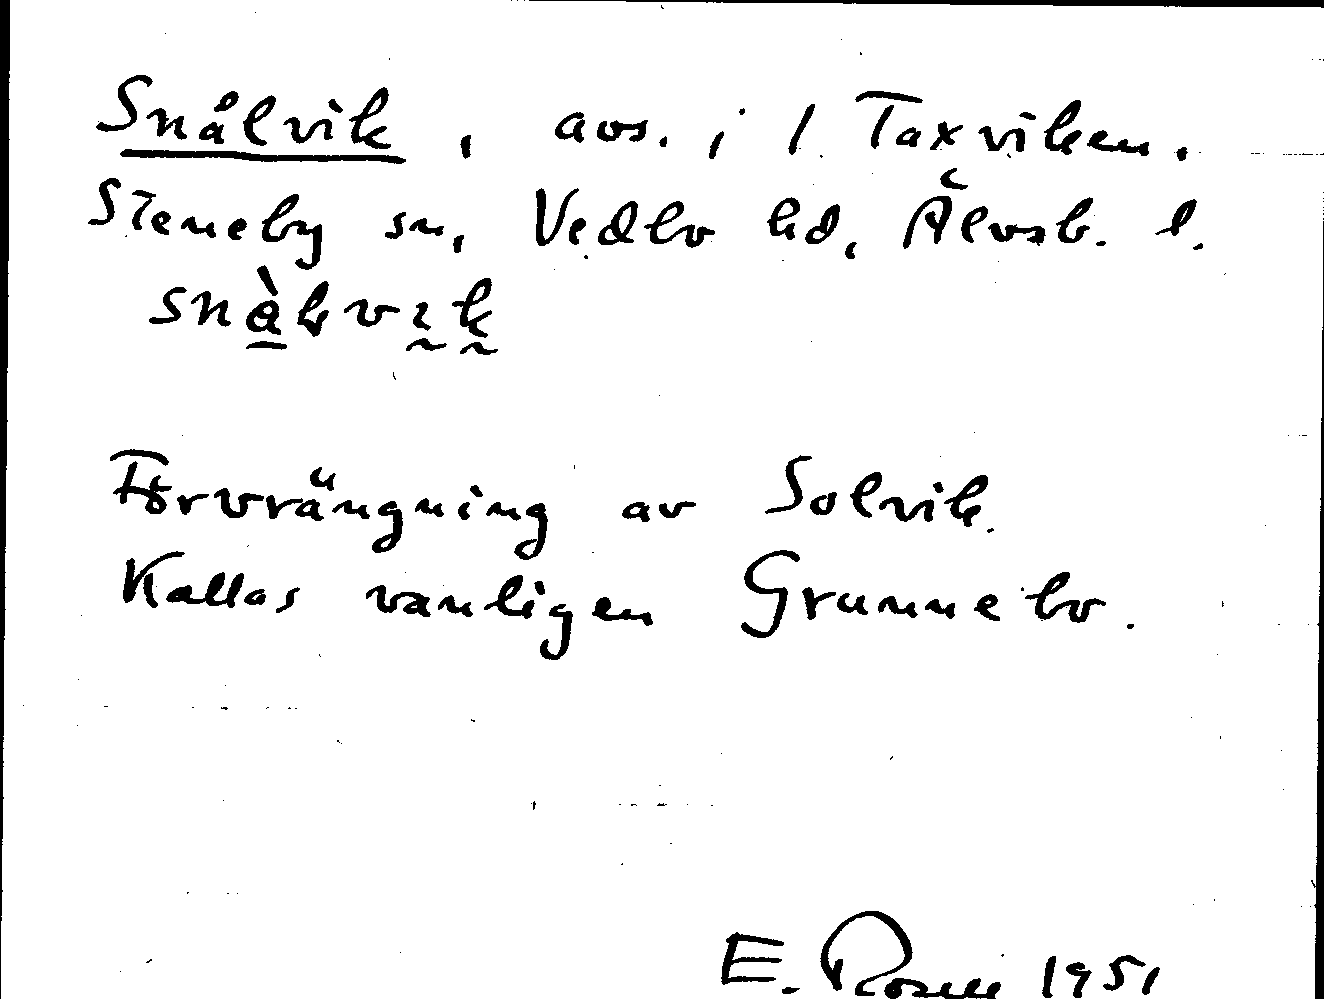 Snålvik, avs. i 1 Taxviken.
Steneby sn, Vedbo hd, Älvsb. l.
Förvrängning av Solvik.
Kallas vanligen Grunnebo.
E. 1951